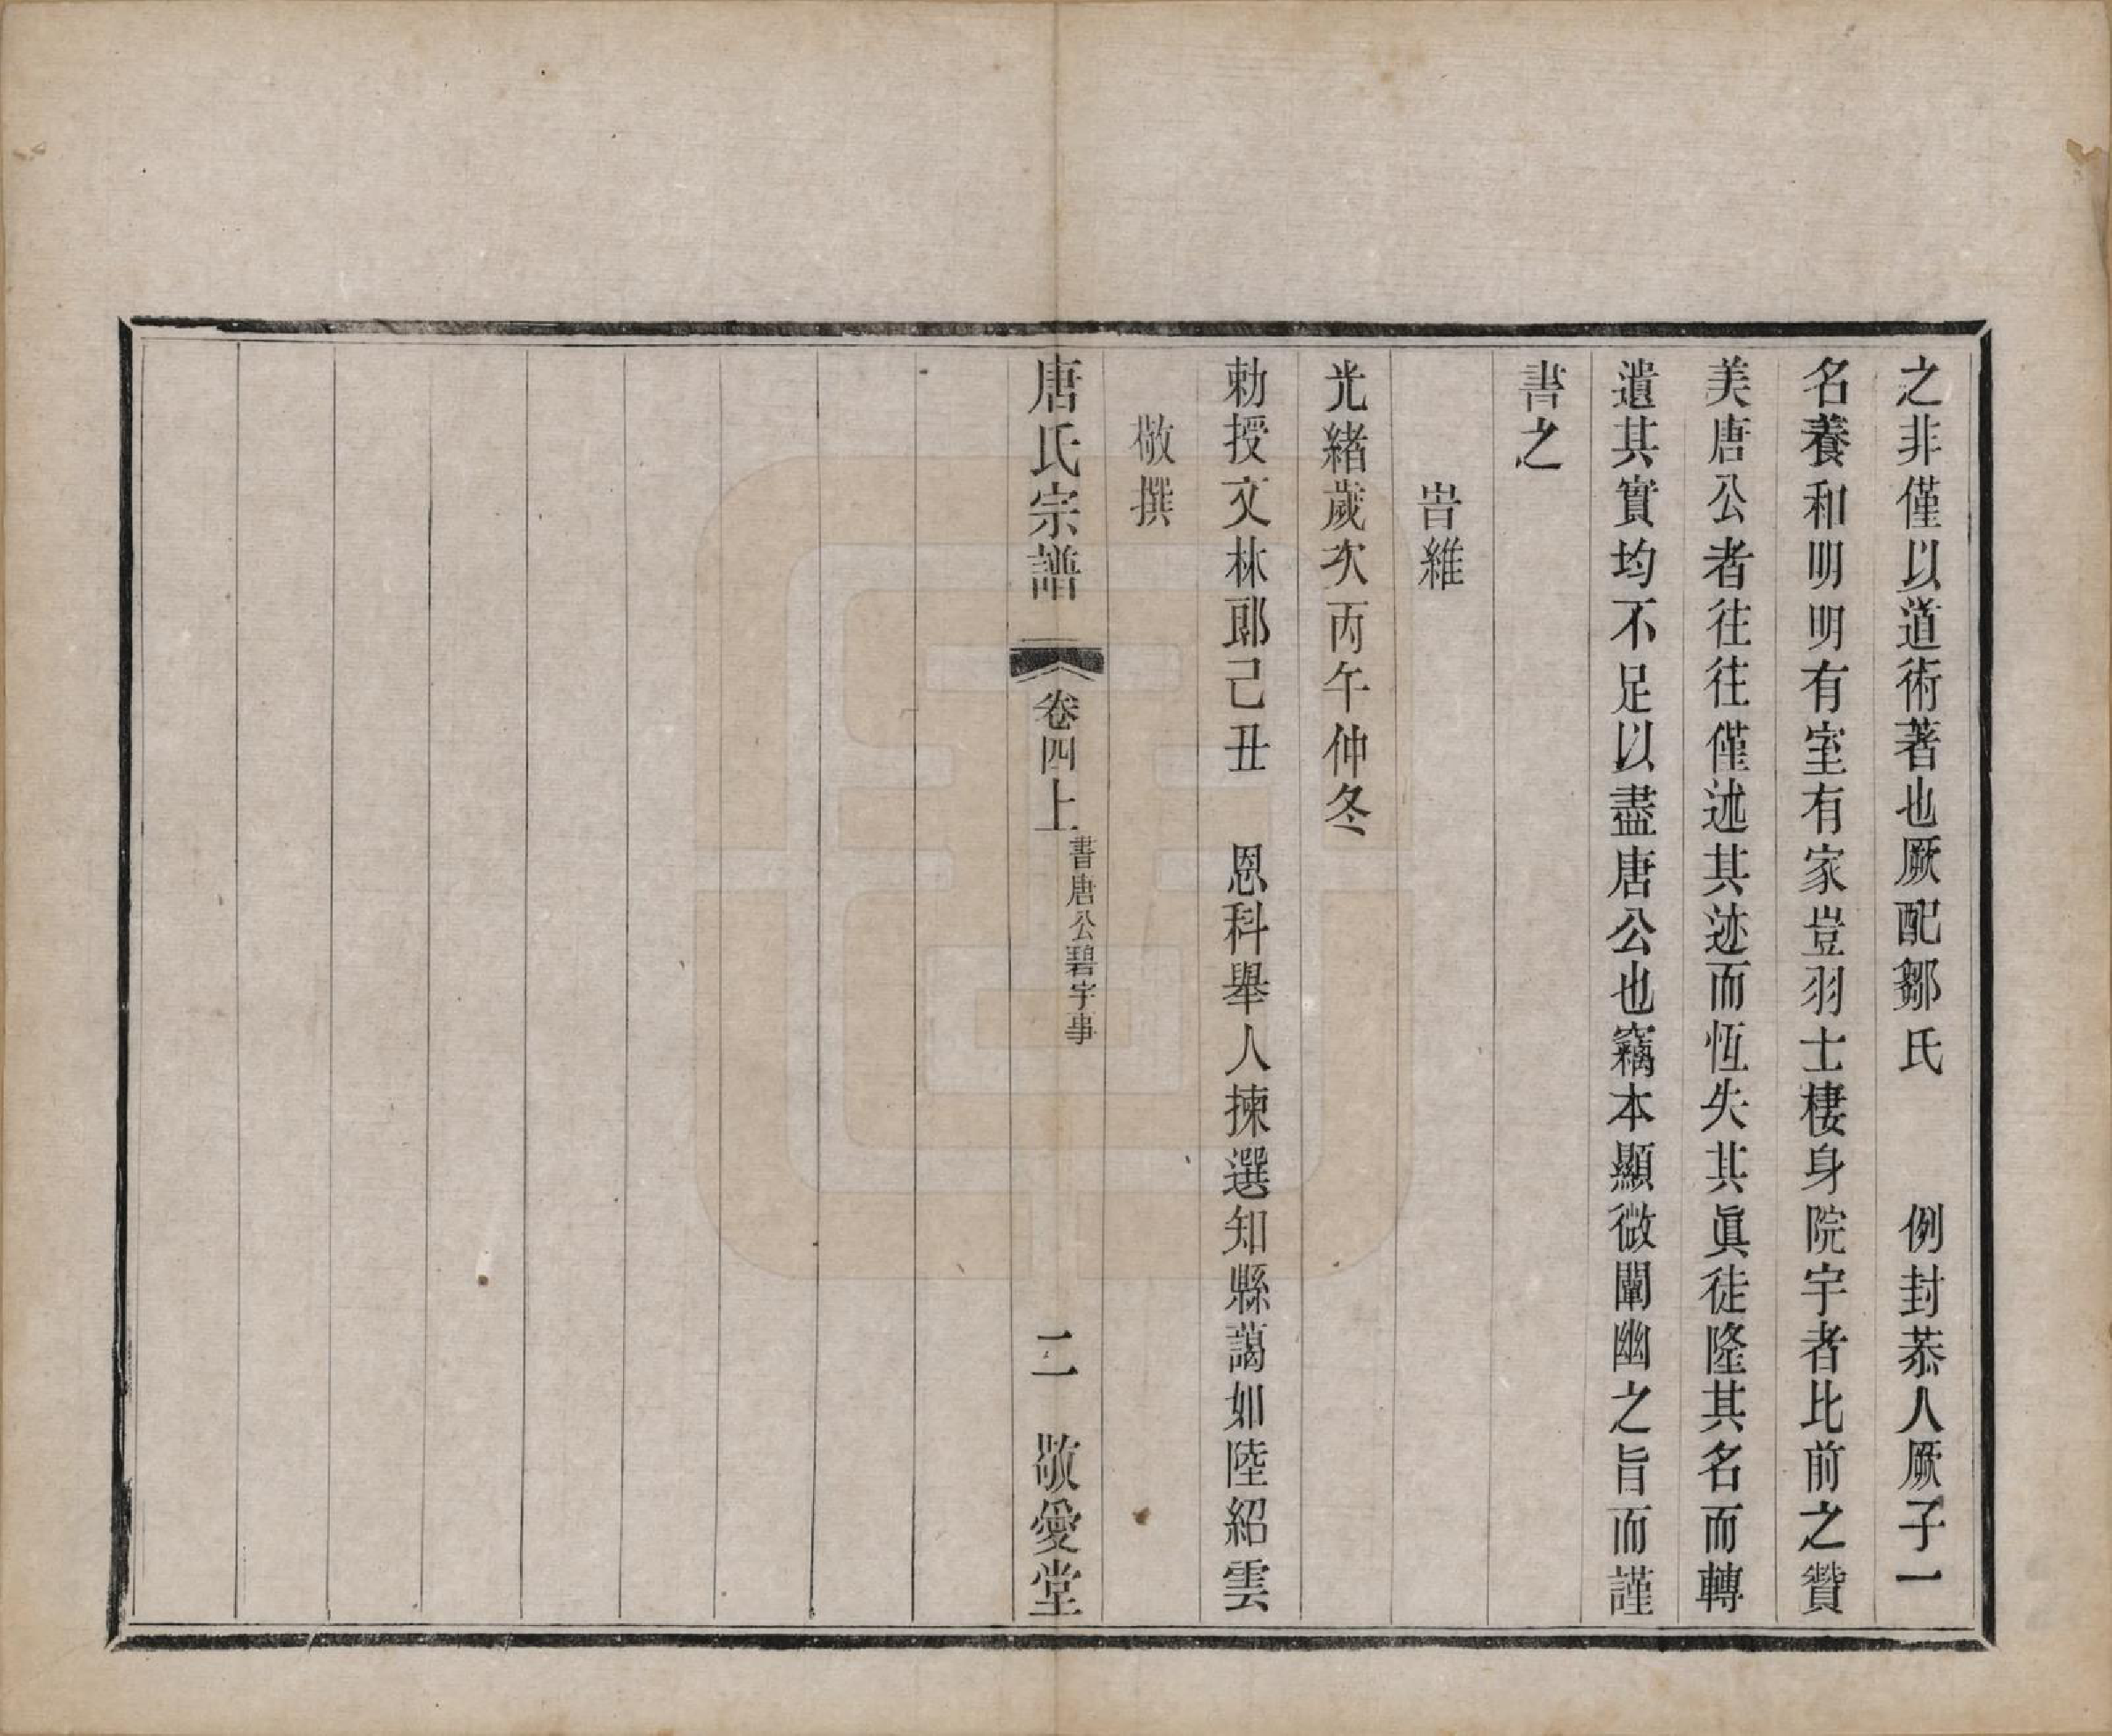 之非僅以道術著也厥配鄒氏　　例封恭人厥子一
名養和明明有室有家豈羽士棲身院宇者比前之贊
美唐公者往往僅述其迹而恆失其眞徒隆其名而轉
遺其實均不足以盡唐公也竊本顯微闡幽之旨而謹
書之
旹維
光緒歲次丙午仲冬
勅授文林郎己丑　恩科舉人揀選知縣藹如陸紹雲
敬撰
唐氏宗譜　卷四上　書唐公碧宇事　二　敬愛堂